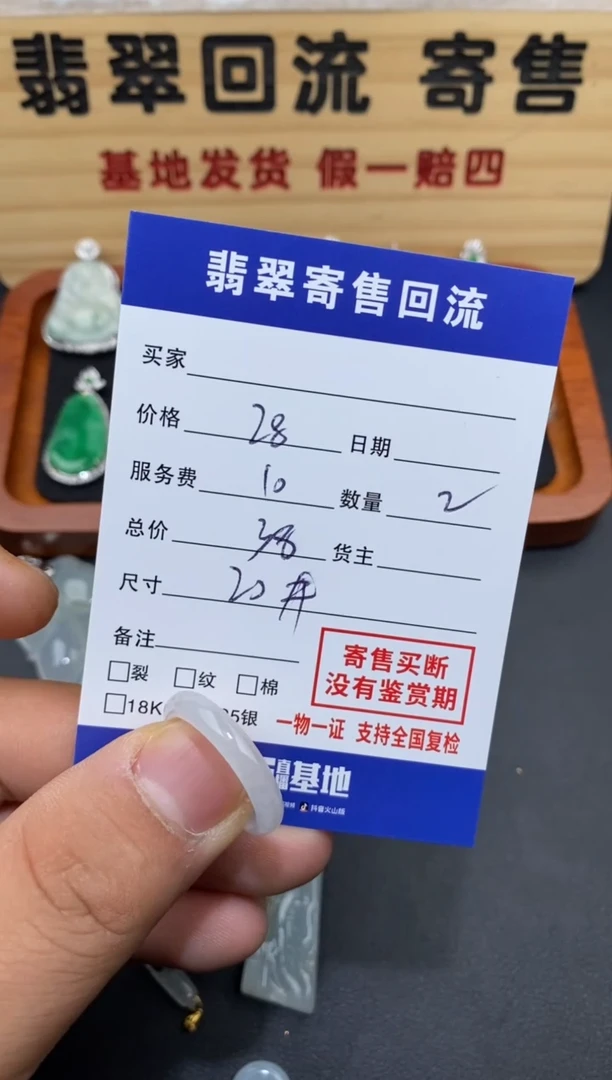 翡翠回流 寄售
基地发货 假一赔四
翡翠寄售回流
买家
价格 28 日期
服务费 10 数量 2
总价 38 货主
尺寸 20#
备注
寄售买断
没有鉴赏期
裂 纹 棉
18K 银
一物一证 支持全国复检
基地
抖音火山版